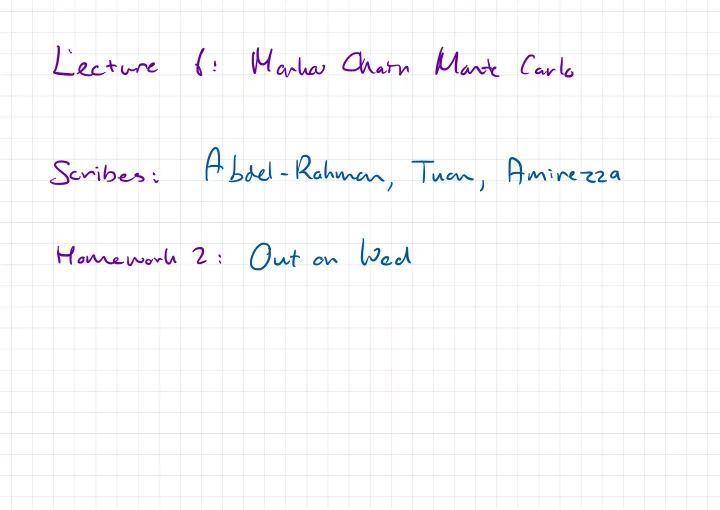 Lecture 6: Markov Chain Monte Carlo
Scribes: Abdel-Rahman, Tuan, Amirezza
Homework 2: Out on Wed